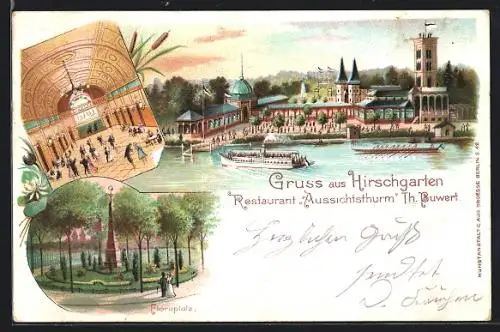 Gruss aus Hirschgarten
Restaurant „Aussichtsthurm“ Th. Buwert
Herzlichen Gruß
sendet
KUNSTANSTALT C. AUG. DROESSE BERLIN S 42.